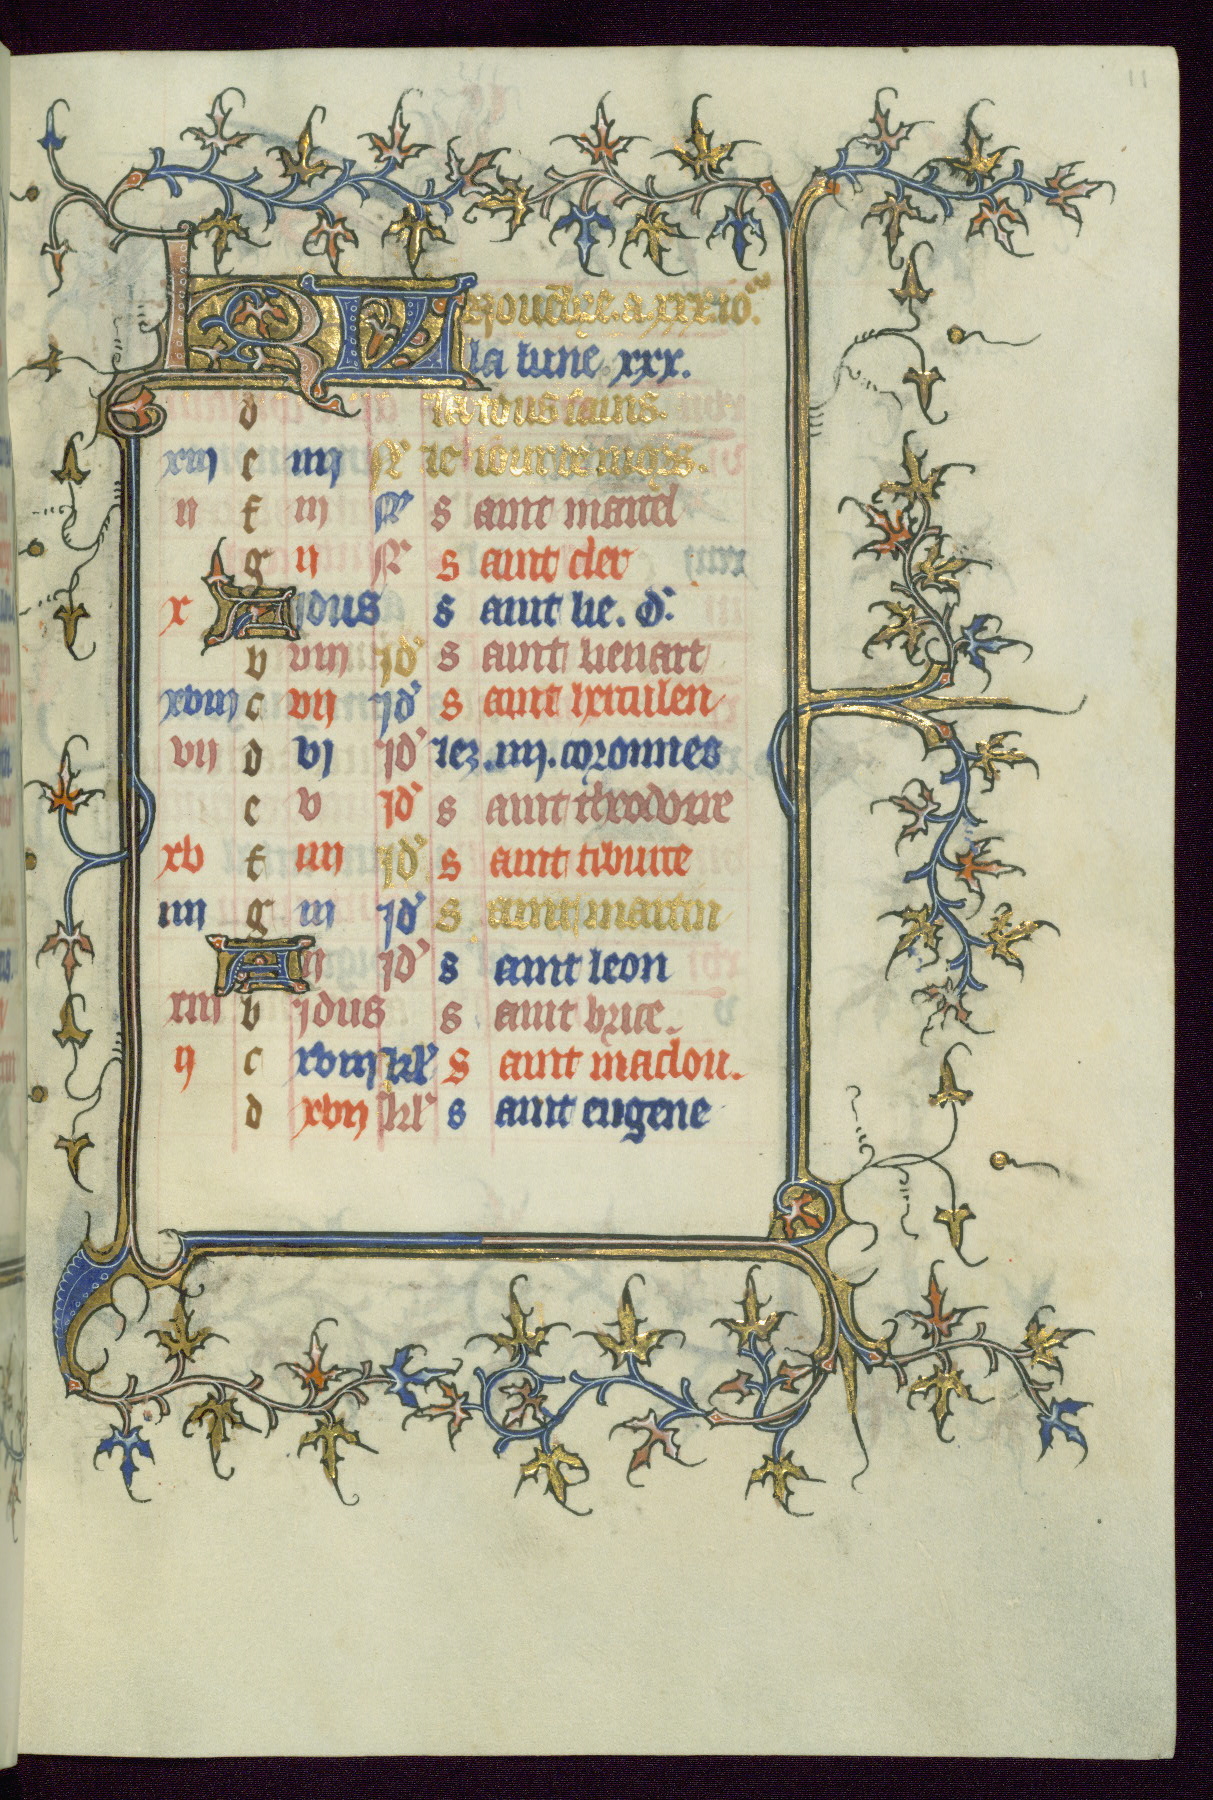 11
KL Nouebre a xxx io^rs
la lune. xxx.
d la tous sains.
xiii e iiii N le iour de mors.
ii f iii N s aint marcel
g ii N s aint cler
x A idus s aint lie. d
b viii id s aint lienart
xviii c vii id s aint herculen
vii d vi id lez .iiii. coronnes
e v id s aint theodore
xv f iiii id s aint tiburce
iiii g iii id s aint martin
A ii id s aint leon
xiii b idus s aint brice.
ii c xviii kl s aint maclou.
d xvii kl s aint eugene